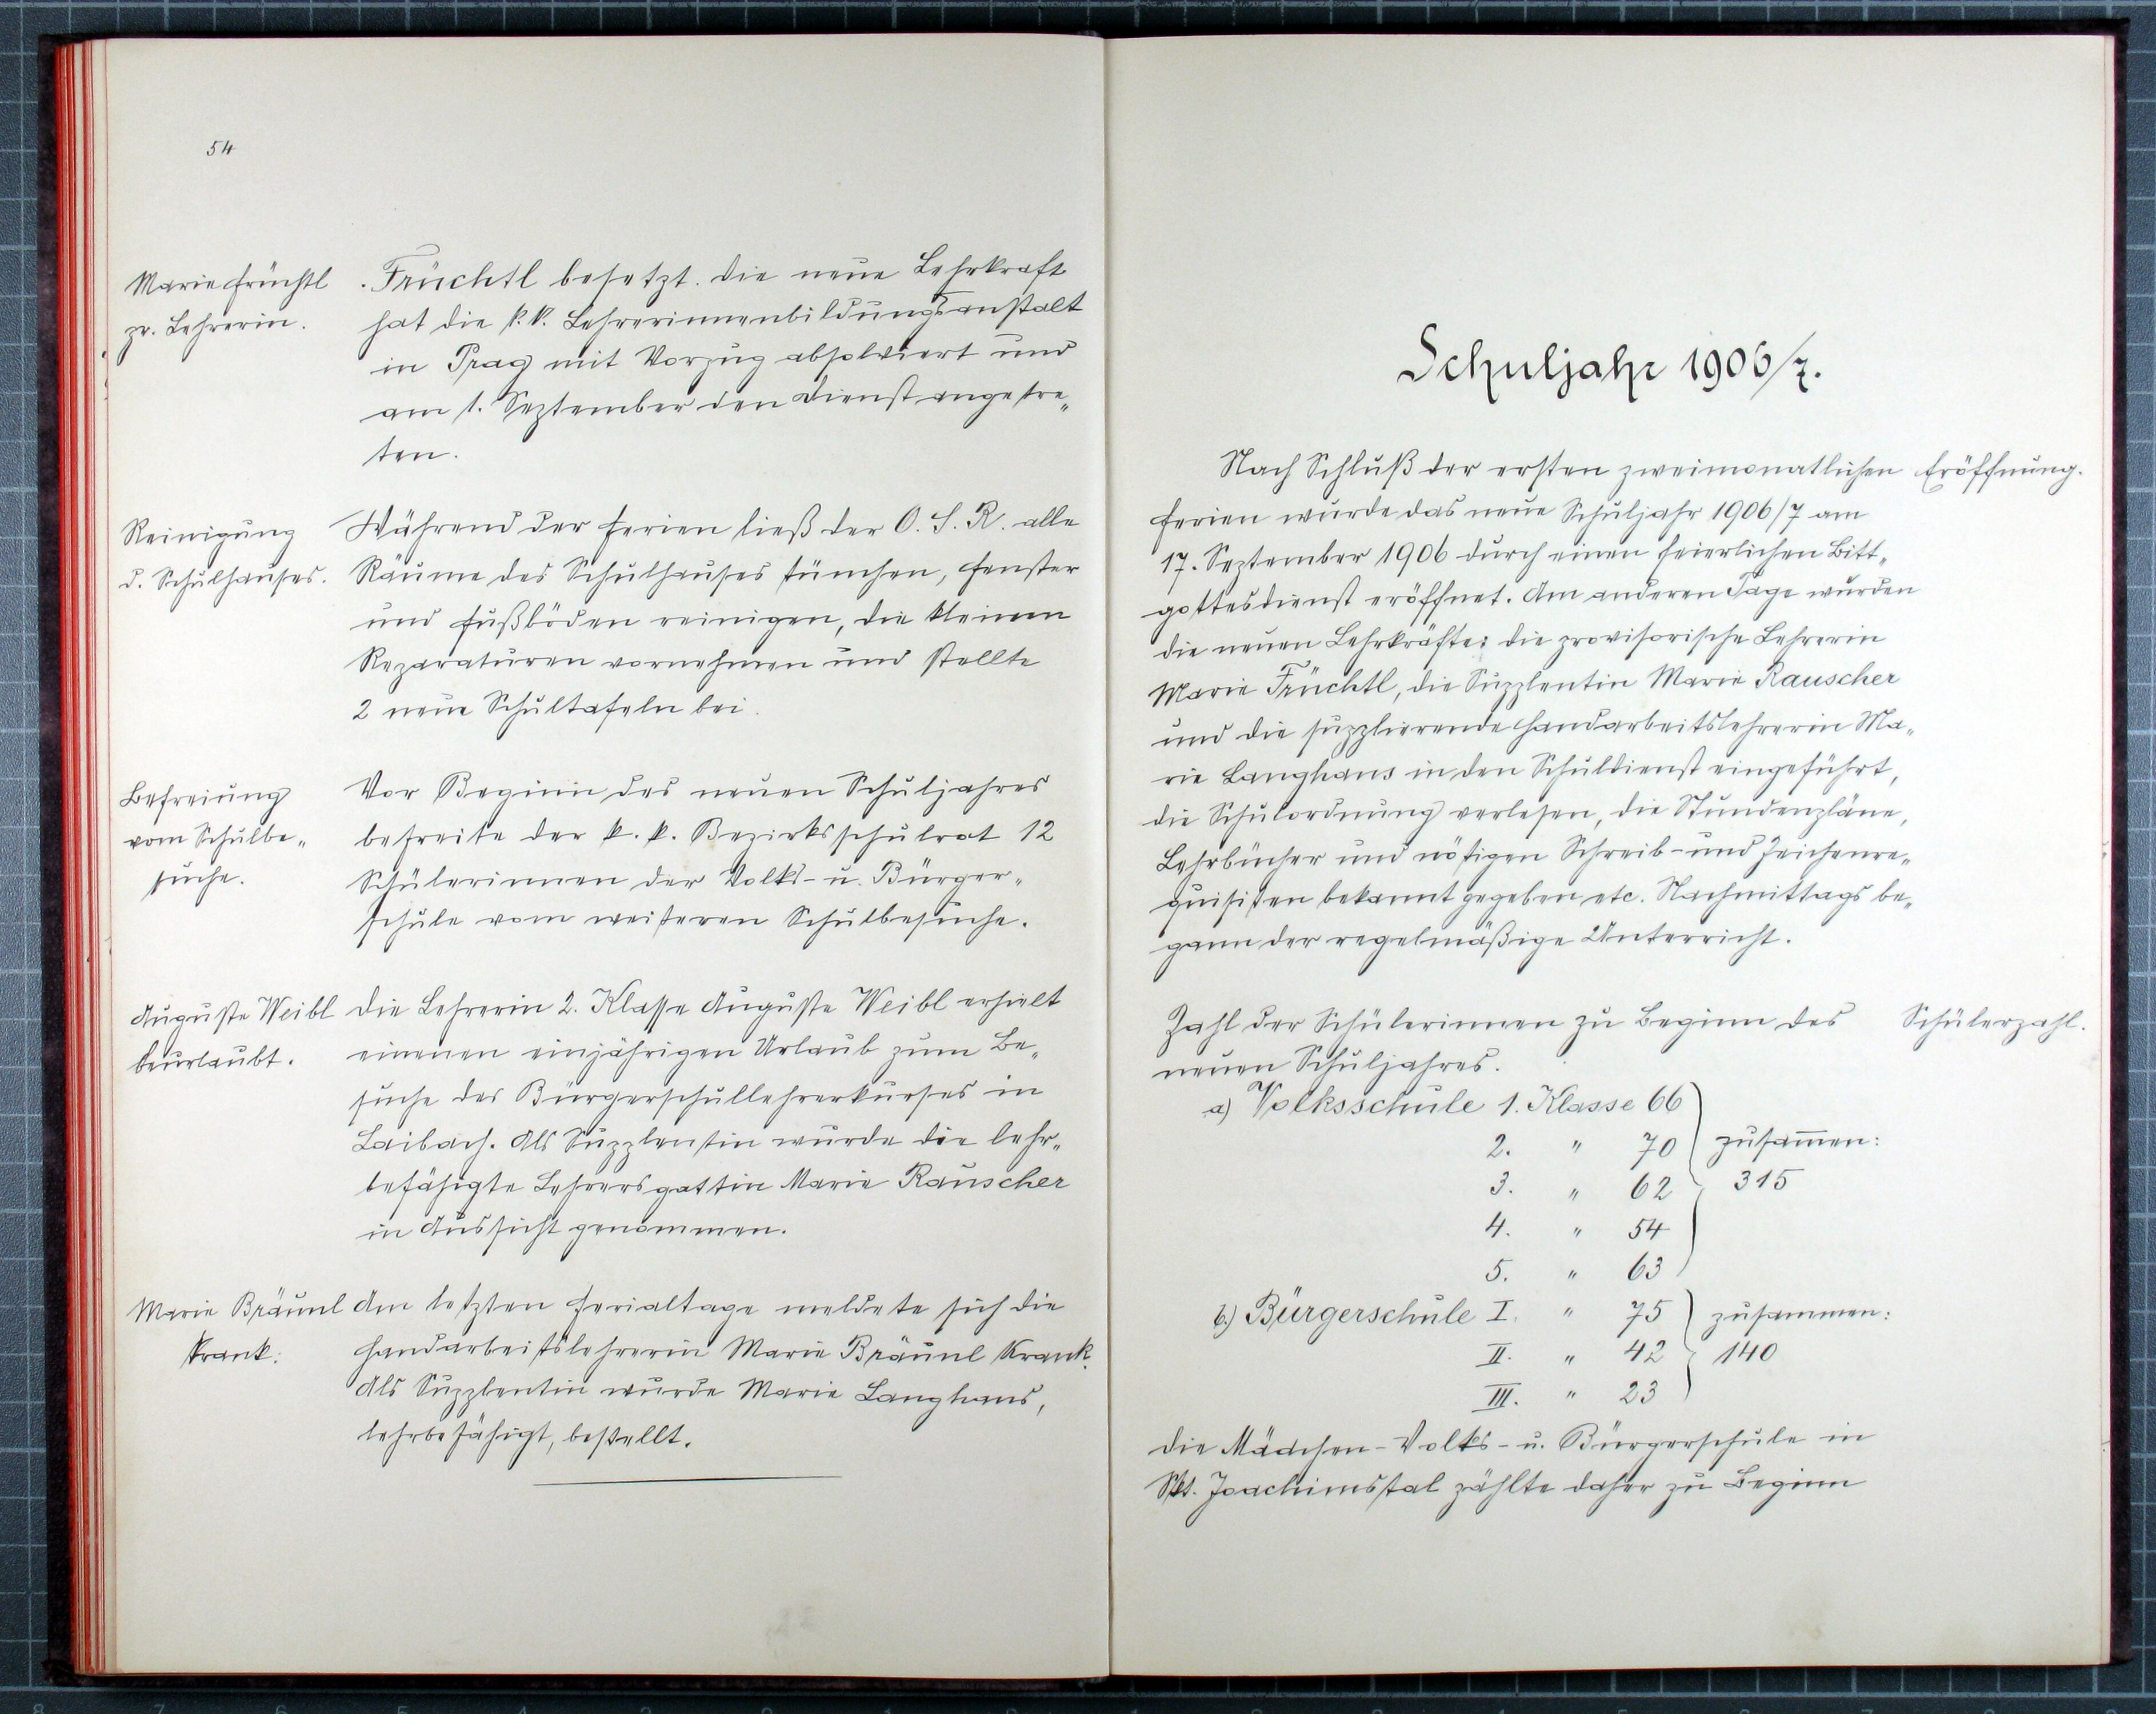 54
Marie Früchtl
pr. Lehrerin.
Früchtl besetzt. Die neue Lehrkraft
hat die k. k. Lehrerinnenbildungsanstalt
in Prag mit Vorzug absolviert und
am 1. September den Dienst angetre„
ten.
Reinigung
d. Schulhauses.
Während der Ferien ließ der O. S. R. alle
Räume des Schulhauses tünchen, Fenster
und Fußböden reinigen, die kleinen
Reparaturen vornehmen und stellte
2 neue Schultafeln bei.
Befreiung
vom Schulbe„
suche.
Vor Beginn des neuen Schuljahres
befreite der k. k. Bezirksschulrat 12
Schülerinnen der Volks- u. Bürger„
schule vom weiteren Schulbesuche.
Auguste Weibl
beurlaubt.
Die Lehrerin 2. Klasse Auguste Weibl erhielt
einenen einjährigen Urlaub zum Be„
suche des Bürgerschullehrerkurses in
Laibach. Als Supplentin wurde die lehr„
befähigte Lehrersgattin Marie Rauscher
in Aussicht genommen.
Marie Bräunl
krank.
Am letzten Ferialtage meldete sich die
Handarbeitslehrerin Marie Bräunl krank.
Als Supplentin wurde Marie Langhans,
lehrbefähigt, bestellt.
Schuljahr 1906/7.
Nach Schluß der ersten zweimonatlichen
Eröffnung.
Ferien wurde das neue Schuljahr 1906/7 am
17. September 1906 durch einen feierlichen Bitt„
gottesdienst eröffnet. Am anderen Tage wurden
die neuen Lehrkräfte: die provisorische Lehrerin
Marie Früchtl, die Supplentin Marie Rauscher
und die supplierende Handarbeitslehrerin Ma„
rie Langhans in den Schuldienst eingeführt,
die Schulordnung verlesen, die Stundenpläne,
Lehrbücher und nötigen Schreib- und Zeichenre„
quisiten bekannt gegeben etc. Nachmittags be„
gann der regelmäßige Unterricht.
Zahl der Schülerinnen zu Beginn des
Schülerzahl.
neuen Schuljahres.
a) Volksschule 1. Klasse 66
2. " 70 zusammen:
3. " 62 315
4. " 54
5. " 63
b) Bürgerschule I. " 75 zusammen:
II. " 42 140
III. " 23
Die Mädchen-Volks- u. Bürgerschule in
Skt. Joachimstal zählte daher zu Beginn